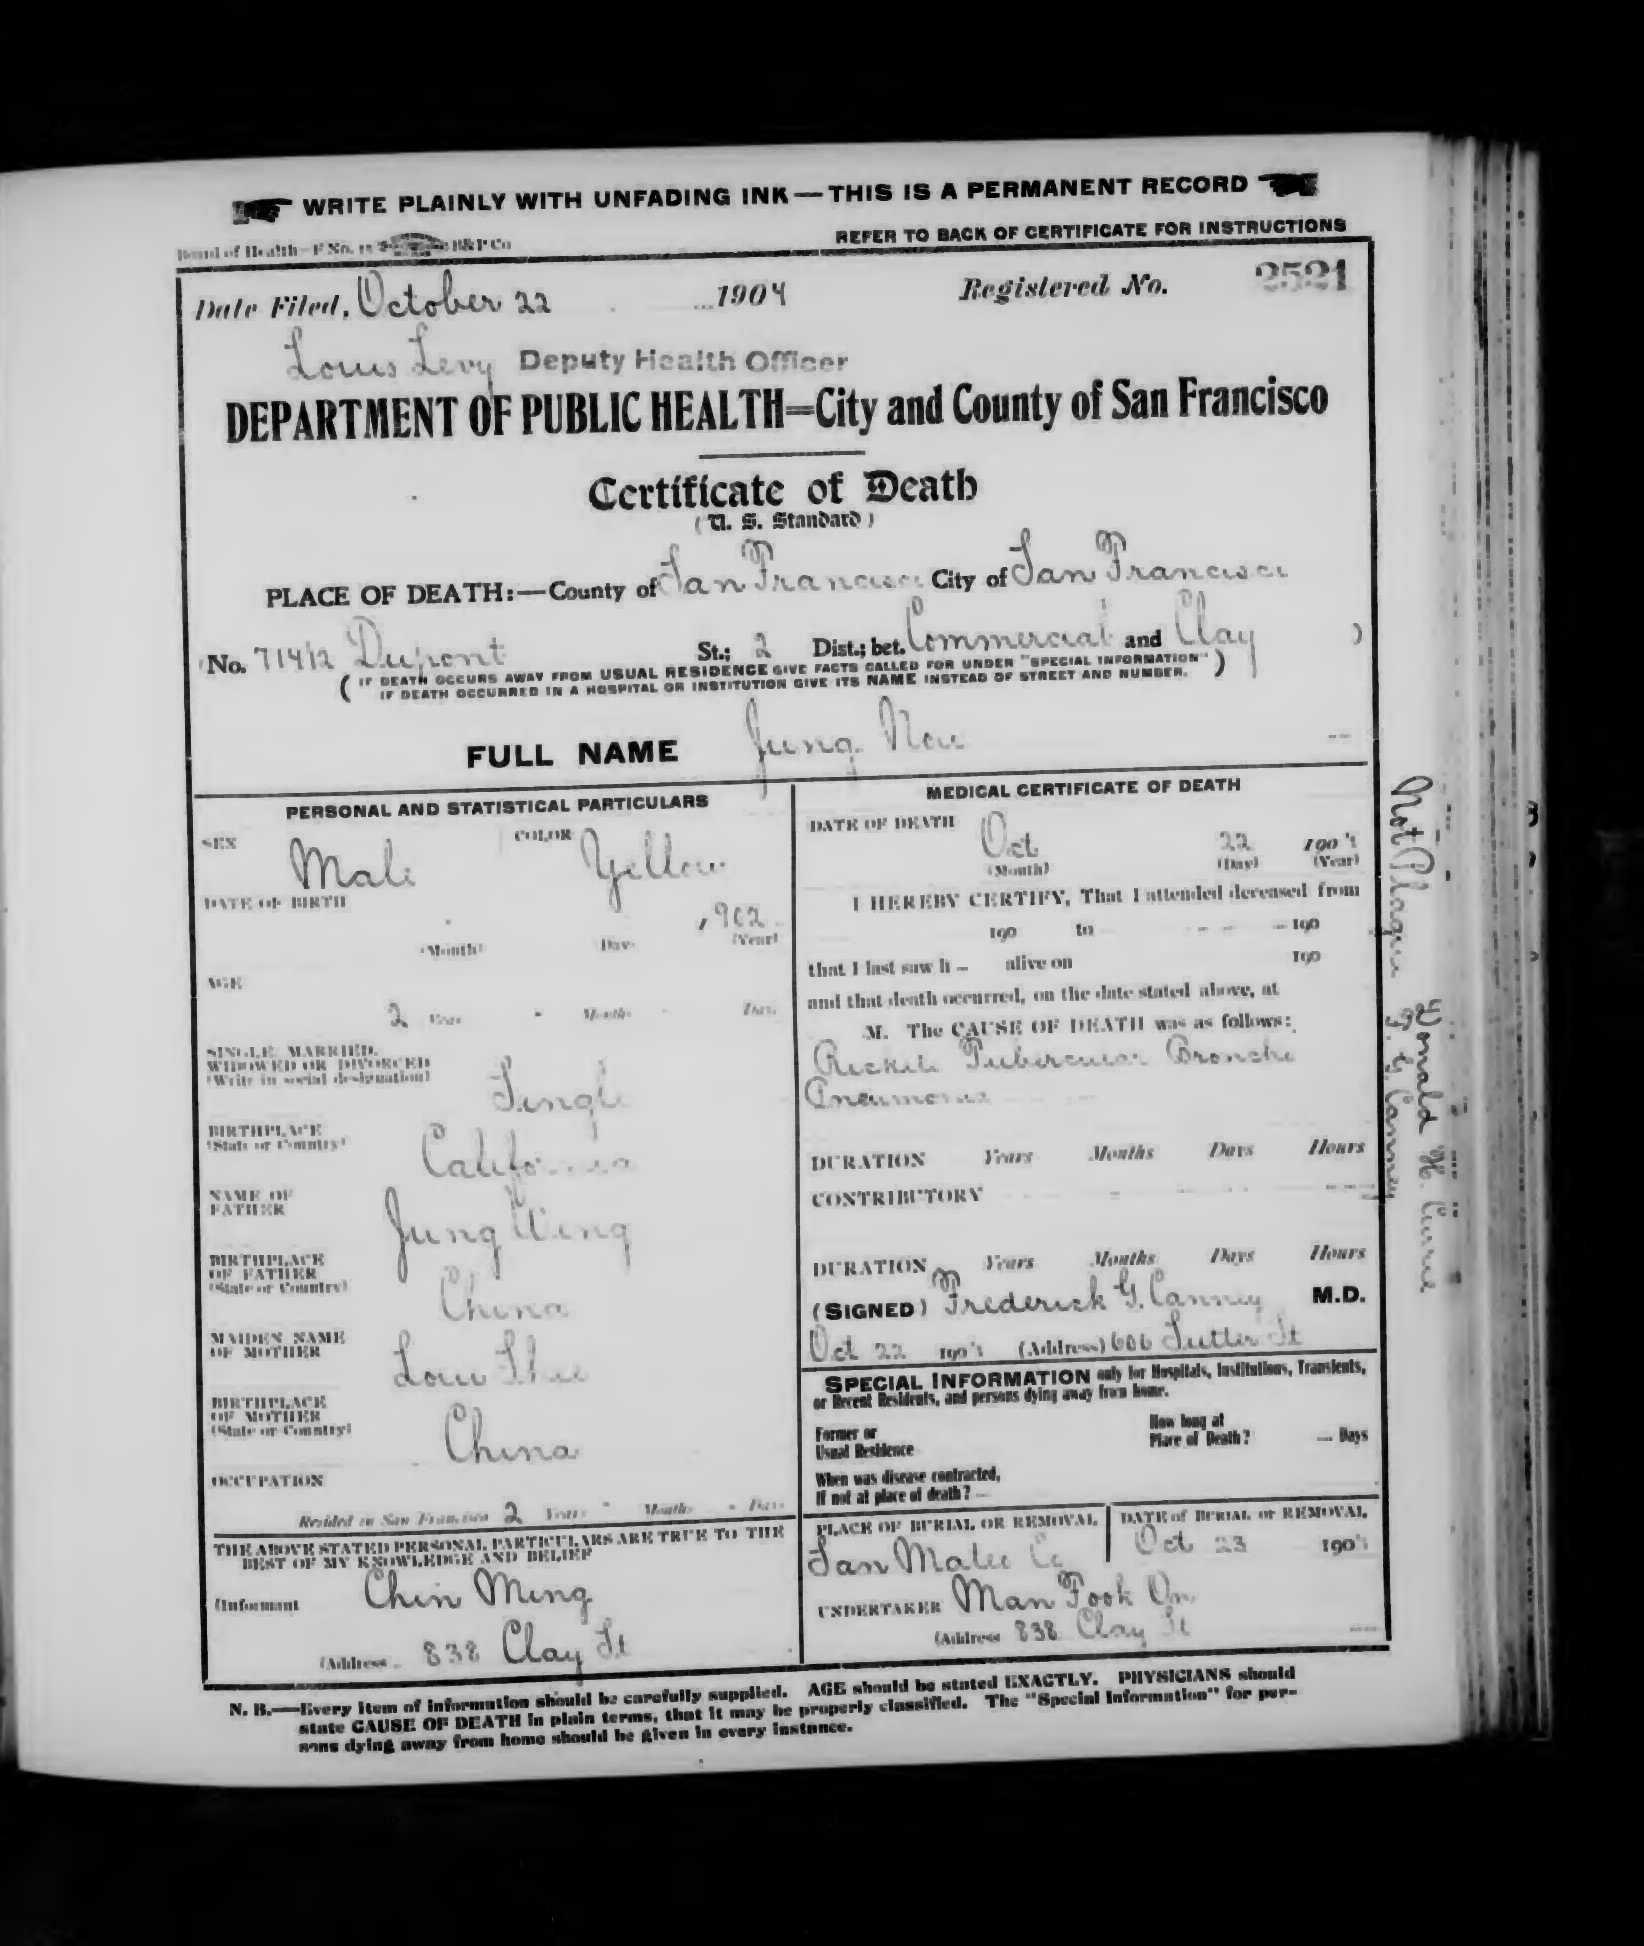 WRITE PLAINLY WITH UNFADING INK—THIS IS A PERMANENT RECORD
Board of Health—F No. B&P Co
REFER TO BACK OF CERTIFICATE FOR INSTRUCTIONS
Date Filed, October 22 1904 Registered No. 2521
Louis Levy Deputy Health Officer
DEPARTMENT OF PUBLIC HEALTH=City and County of San Francisco
Certificate of Death
(U. S. Standard)
PLACE OF DEATH:—County of San Francisco City of San Francisco
No. 714 1/2 Dupont St.; 2 Dist.; bet. Commercial and Clay )
( IF DEATH OCCURS AWAY FROM USUAL RESIDENCE GIVE FACTS CALLED FOR UNDER "SPECIAL INFORMATION" )
IF DEATH OCCURRED IN A HOSPITAL OR INSTITUTION GIVE ITS NAME INSTEAD OF STREET AND NUMBER.
FULL NAME Jung
PERSONAL AND STATISTICAL PARTICULARS
SEX Male COLOR Yellow
DATE OF BIRTH
1902
(Month) (Day) (Year)
AGE
2 Years - Months - Days
SINGLE, MARRIED,
WIDOWED OR DIVORCED
(Write in social designation) Single
BIRTHPLACE
(State or Country) California
NAME OF
FATHER Jung Wing
BIRTHPLACE
OF FATHER
(State or Country) China
MAIDEN NAME
OF MOTHER Shee
BIRTHPLACE
OF MOTHER
(State or Country) China
OCCUPATION
Resided in San Francisco 2 Years - Months - Days
THE ABOVE STATED PERSONAL PARTICULARS ARE TRUE TO THE
BEST OF MY KNOWLEDGE AND BELIEF
(Informant Chin Ming
(Address 838 Clay St
MEDICAL CERTIFICATE OF DEATH
DATE OF DEATH Oct 22 1904
(Month) (Day) (Year)
I HEREBY CERTIFY, That I attended deceased from
190 to 190
that I last saw h – alive on 190
and that death occurred, on the date stated above, at
M. The CAUSE OF DEATH was as follows:
Rickets Tubercular Broncho
Pneumonia
DURATION Years Months Days Hours
CONTRIBUTORY
DURATION Years Months Days Hours
(SIGNED) Frederick G. Canney M.D.
Oct 22 1904 (Address) 606 Sutter St
SPECIAL INFORMATION only for Hospitals, Institutions, Transients,
or Recent Residents, and persons dying away from home.
Former or
Usual Residence
How long at
Place of Death? — Days
When was disease contracted,
If not at place of death? —
PLACE OF BURIAL OR REMOVAL
San Mateo Co
DATE of BURIAL or REMOVAL
Oct 23 1904
UNDERTAKER Man Fook On
(Address 838 Clay St
N. B.—Every item of information should be carefully supplied. AGE should be stated EXACTLY. PHYSICIANS should
state CAUSE OF DEATH in plain terms, that it may be properly classified. The "Special Information" for per-
sons dying away from home should be given in every instance.
Not Plague F. G. Canney
Donald H. Currie